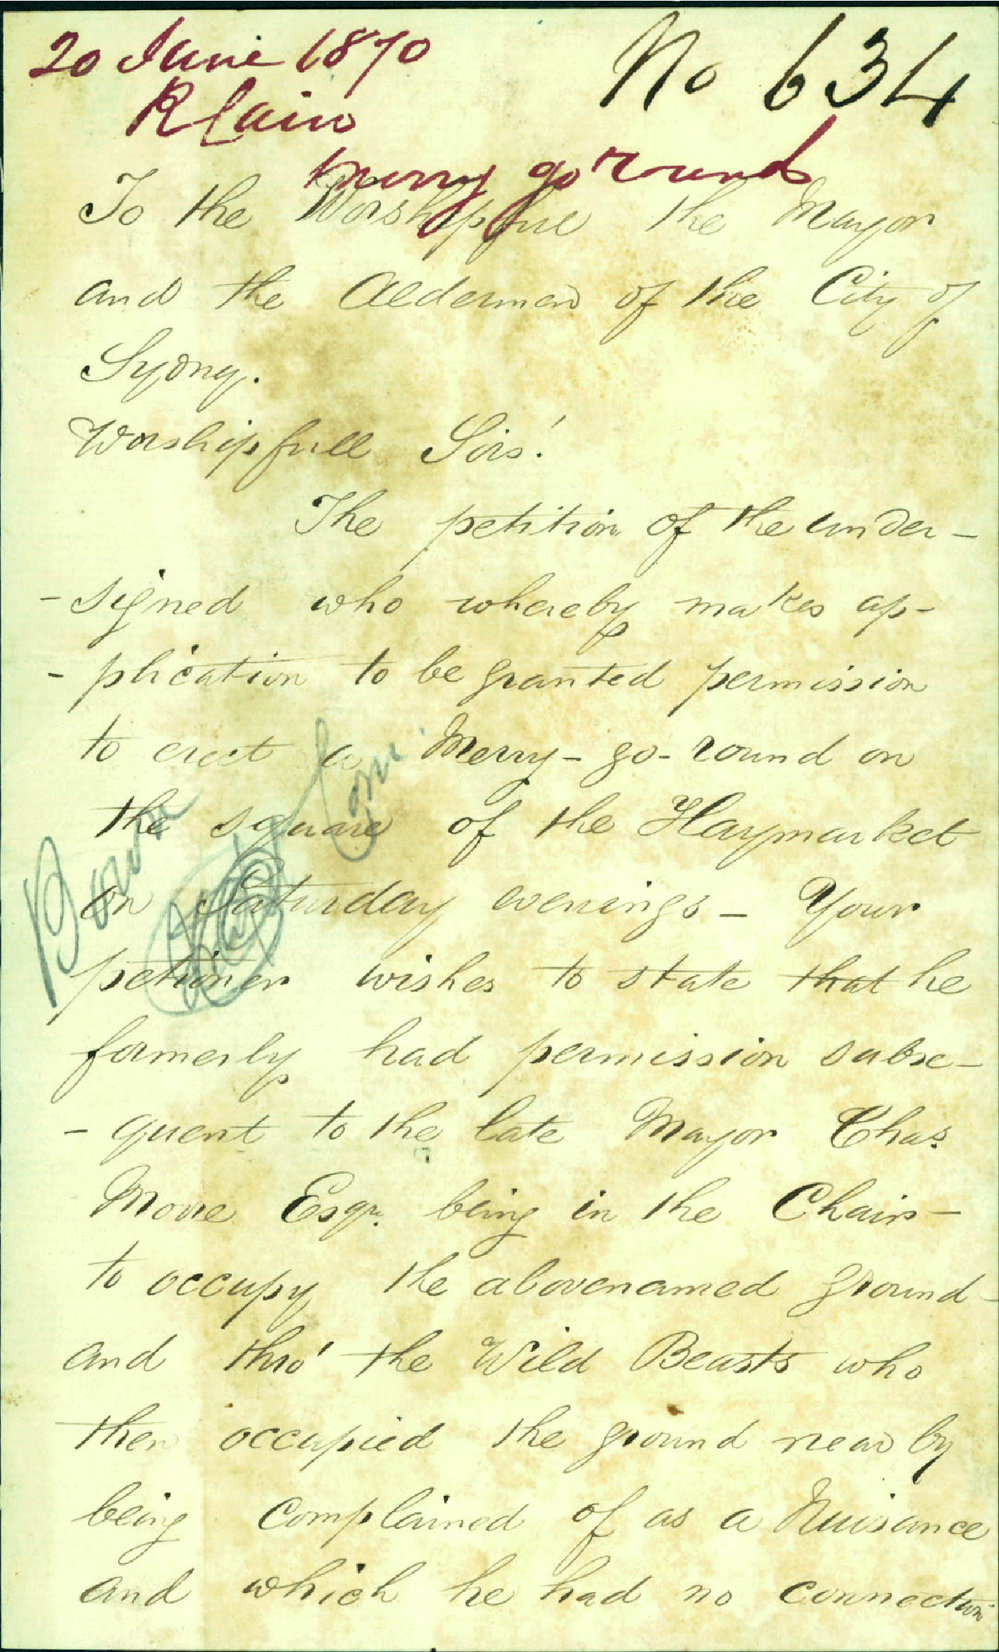 20 June 1870
No 634
R Cain
merry go round
To the Worshipfull the Mayor
and the Aldermen of the City of
Sydny.
Worshipfull Sirs!
The petition of the under-
- signed who whereby makes ap-
- plication to be granted permission
to erect a Merry-go-round on
the square of the Haymarket
on Saturday evenings - Your
petioner wishes to state that he
formerly had permission subse-
- quent to the late Mayor Chas
Moore Esqr. being in the Chair -
to occupy the abovenamed ground -
and thro' the Wild Beasts who
then occupied the ground near by
being complained of as a Nuisance
and which he had no connection